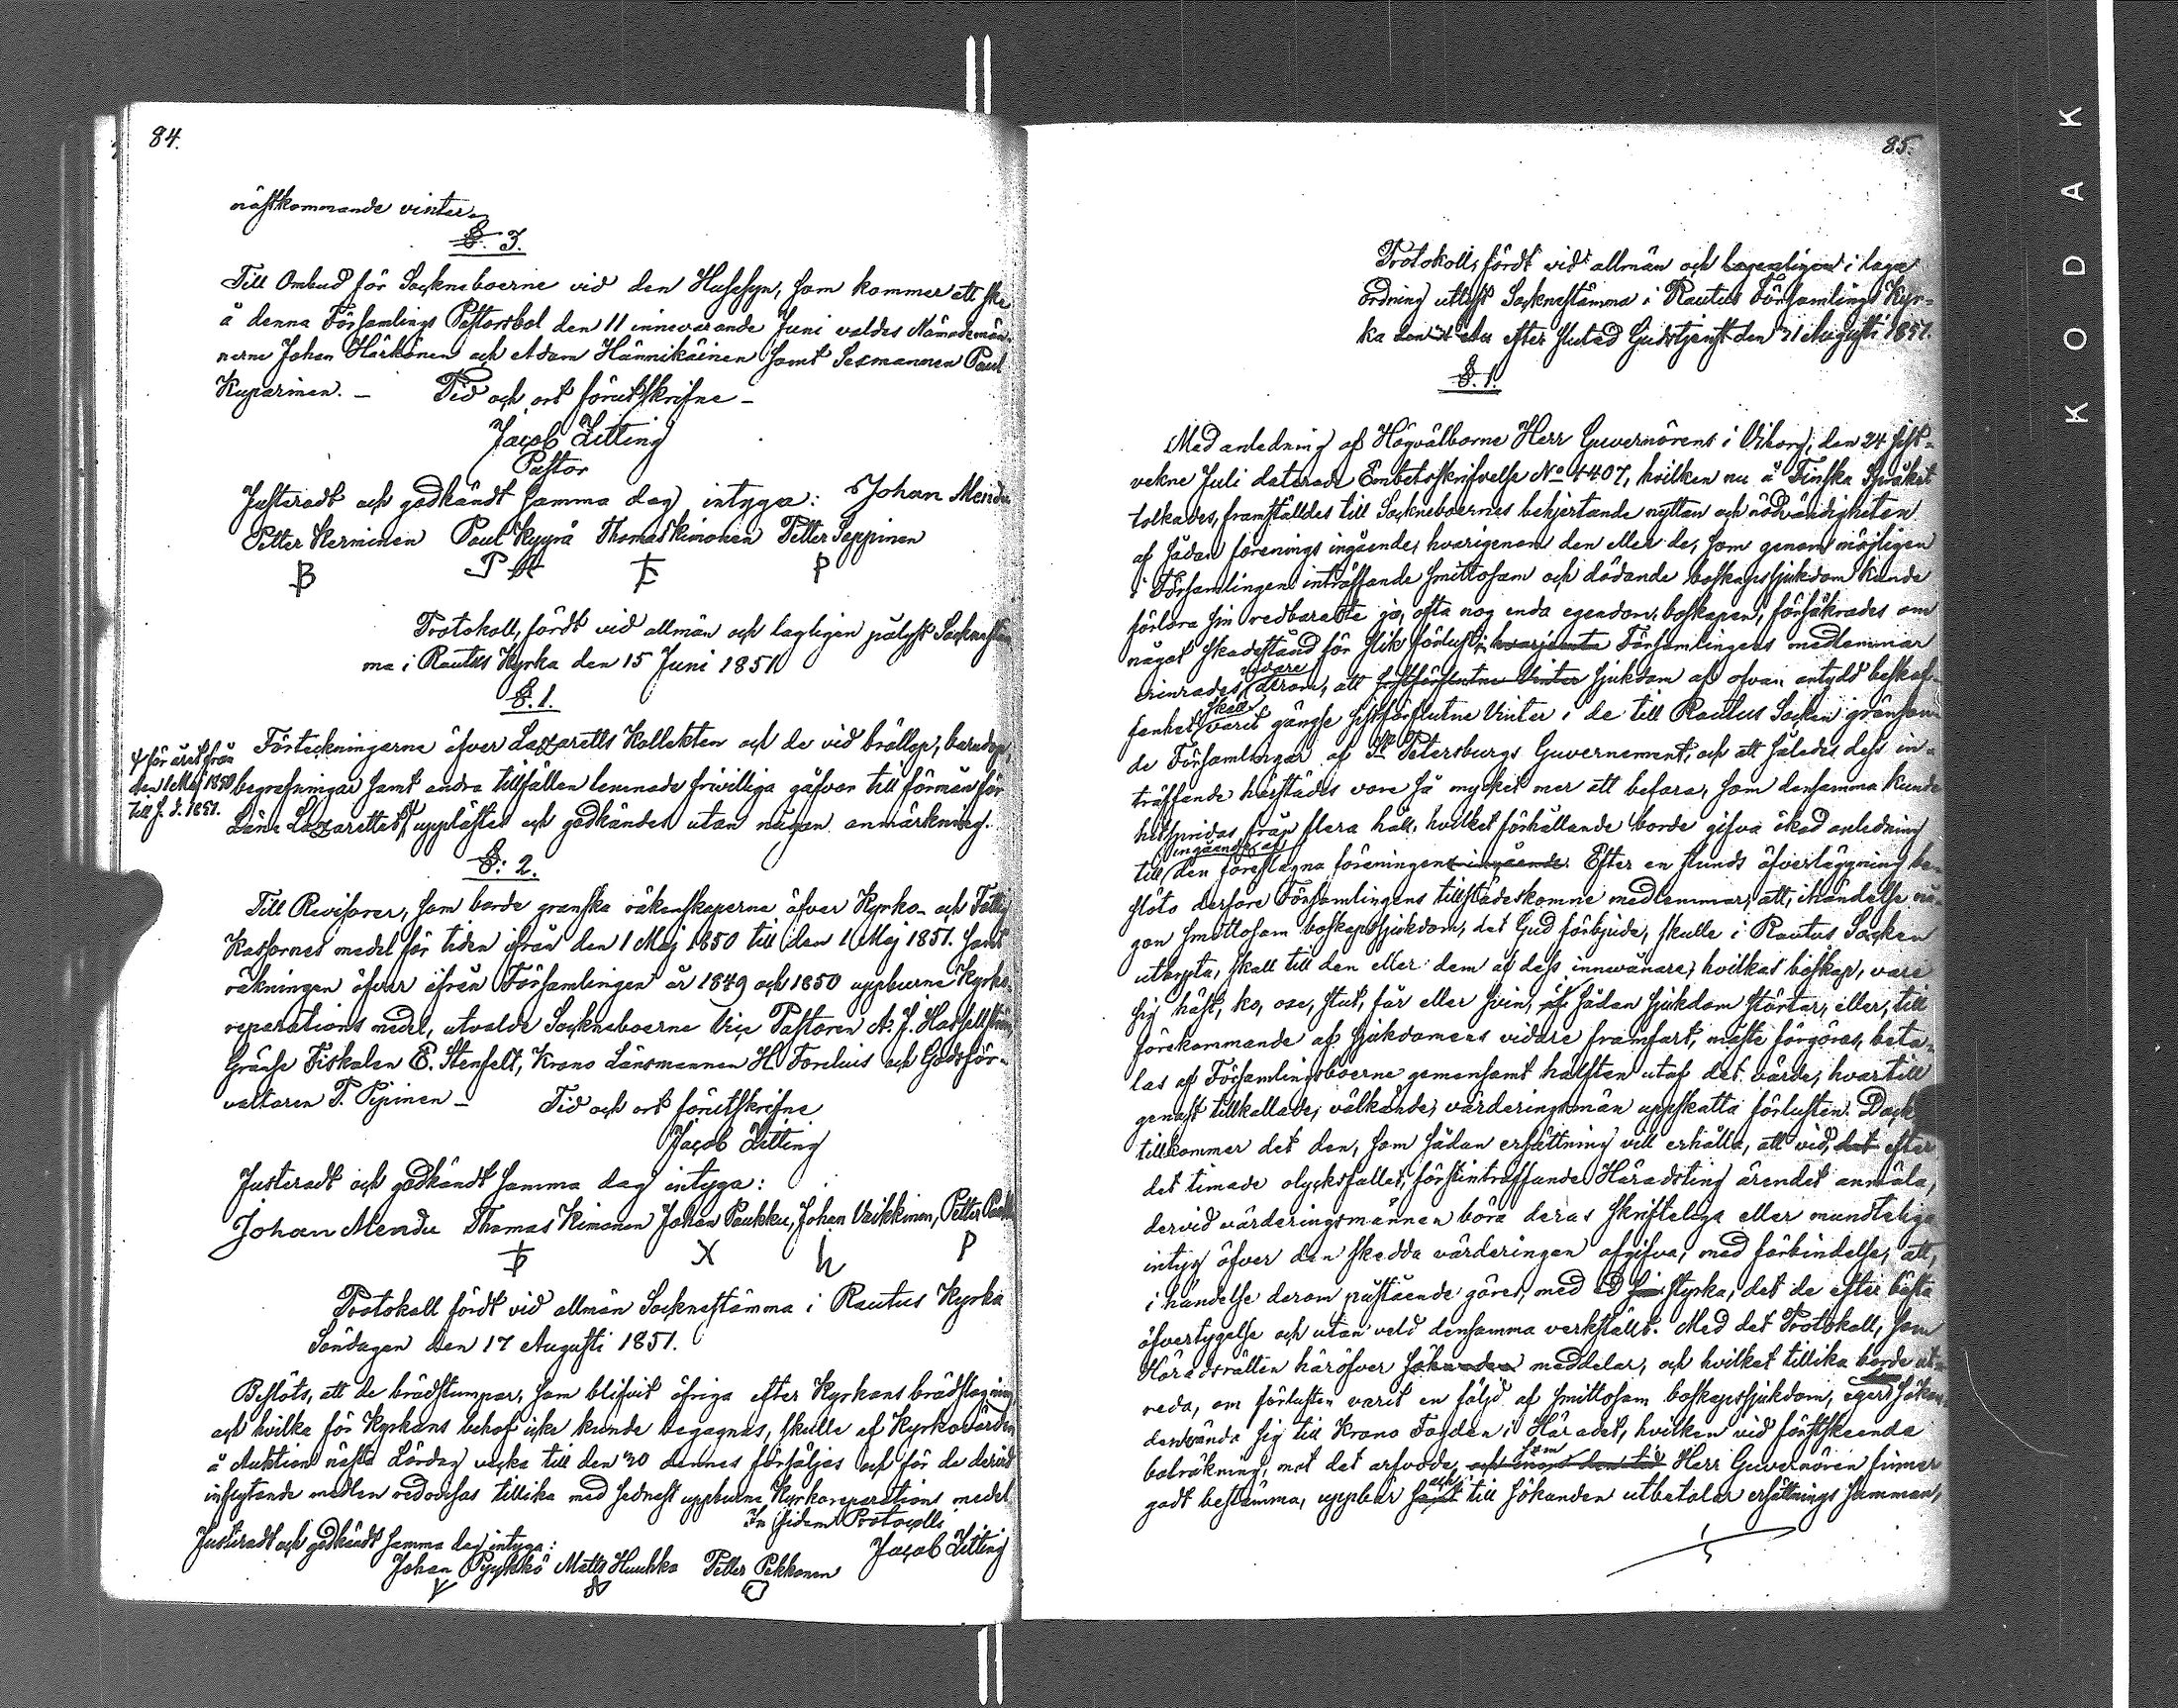 84.
nästkommande vinter.
§. 3.
Till Ombud för Sockneboerne vid den Husesyn, som kommer att ske
å denna Församlings Pastorsbol den 11 innevarande Juni valdes Nämndemän-
nerne Johan Härkönen och Adam Hännikäinen samt Sexmannen Paul
Kuparinen. — Tid och ort förutskrifne —
Jacob Zitting
Pastor
Justeradt och godkändt samma dag intyga: Johan Mendu
Petter Kerminen Paul Kyyrä Thomas Kimonen Petter Seppinen
Protokoll, fördt vid allmän och lagligen pålyst Socknestäm
ma i Rautus Kyrka den 15 Juni 1851
§. 1.
Förteckningarne öfver Lazaretts Kollekten och de vid bröllop, barndop,
begrafningar samt andra tillfällen lemnade frivilliga gåfvor till förmån för
Läns Lazarettet upplästes och godkändes utan någon anmärkning.
för året från
den 1 Maj 1850
till s. d. 1851.
§. 2.
Till Revisorer, som borde granska räkenskaperne öfver Kyrko- och Fattig
Kassornes medel för tiden ifrån den 1 Maj 1850 till den 1 Maj 1851. samt
räkningen öfver ifrån Församlingen år 1849 och 1850 uppburne Kyrko-
reparations medel, utvalde Sockneboerne Vice Pastoren A. J. Hassellström,
Gränse Fiskalen E. Stenfelt, Krono Länsmannen H. Forelius och Godsför-
valtaren P. Pipinen — Tid och ort förutskrifne
Jacob Zitting
Justeradt och godkändt samma dag intyga:
Johan Mendu Thomas Kimonen Johan Paukku, Johan Vaikkinen, Petter
Protokoll fördt vid allmän Socknestämma i Rautus Kyrka
Söndagen den 17 Augusti 1851.
Beslöts, att de brädstumpar, som blifvit öfriga efter Kyrkans brädslagning
och hvilka för Kyrkans behof icke kunde begagnas, skulle af Kyrkovärden
å Auktion nästa Lördag vecka till den 30 dennes försäljas och för de dervid
inflytande medlen redovisas tillika med sednast uppburne Kyrkoreparations medel
In fidem Protocolli
Justeradt och godkändt samma dag intyga: Jacob Zitting
Johan Pyykkö Matts Huuhka Petter Pekkonen
85.
Protokoll, fördt vid allmän och i laga
ordning utlyst Socknestämma i Rautus Församlings Kyr-
ka efter slutad Gudstjenst den 31 Augusti 1851.
§. 1.
Med anledning af Högvälborne Herr Guvernörens i Viborg, den 24 sist-
vekne Juli daterade Embetsskrifvelse No 4407, hvilken nu å Finska Språket
tolkades, framställdes till Sockneboernes behjertande nyttan och nödvändigheten
af sådan förenings ingående, hvarigenom den eller de, som genom möjligen
i Församlingen inträffande smittosam och dödande boskapssjukdom kunde
förlora sin redbaraste ja, ofta nog enda egendom, boskapen, försäkrades om
något skadestånd för slik förlust; hvarjemte Församlingens medlemmar
erinrades vidare derom, att sistförflutne Vinter sjukdom af ofvan antydd beskaf-
fenhet skall varit gängse sistförflutne Vinter i de till Rautus Socken gränsan-
de Församlingar af St Petersburgs Guvernement, och att således dess in-
träffande härstädes vore så mycket mer att befara, som densamma kunde
hitspridas från flera håll, hvilket förhållande borde gifva ökad anledning
till ingående af den föreslagna föreningens ingående. Efter en stunds öfverläggning be-
slöto derföre Församlingens tillstädeskomne medlemmar, att, ihändelse nå-
gon smittosam boskapssjukdom, det Gud förbjude, skulle i Rautus Socken
utbryta, skall till den eller dem af dess innevånare, hvilkas boskap, vare
sig häst, ko, oxe, stut, får eller svin, af sådan sjukdom störtar, eller, till
förekommande af sjukdomens vidare framfart, måste förgöras, beta-
las af Församlingsboerne gemensamt hälften utaf det värde, hvartill
genast tillkallade, välkände, värderingsmän uppskatta förlusten. Dock
tillkommer det den, som sådan ersättning vill erhålla, att vid, det efter
det timade olycksfallet, förstinträffande Häradsting ärendet anmäla,
dervid värderingsmännen böra deras skriftelige eller mundtelige
intyg öfver den skedda värderingen afgifva, med förbindelse, att,
i händelse derom påstående göres, med ed styrka, det de efter bästa
öfvertygelse och utan veld densamma verkställt. Med det Protokoll, som
Häradsrätten häröfver sökanden meddelar, och hvilket tillika borde ut-
reda, om förlusten varit en följd af smittosam boskapssjukdom, eger sökan-
den vända sig till Krono Fogden i Häradet, hvilken vid förstskeende
balräkning, mot det arfvode, som och inom den tid Herr Guvernören finner
godt bestämma, uppbär samt och till sökanden utbetalar ersättnings summan,
KODAK